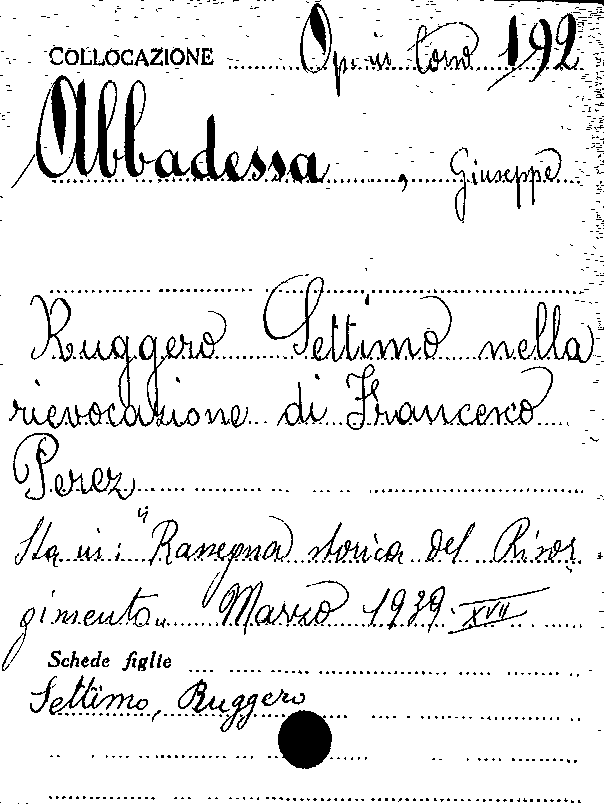 COLLOCAZIONE Op. in Cons 192
Abbadessa, Giuseppe
Ruggero Settimo nella
rievocazione di Francesco
Perez
Sta in: "Rassegna storica del Risor
gimento" Marzo 1939 XVII
Schede figlie
Settimo, Ruggero